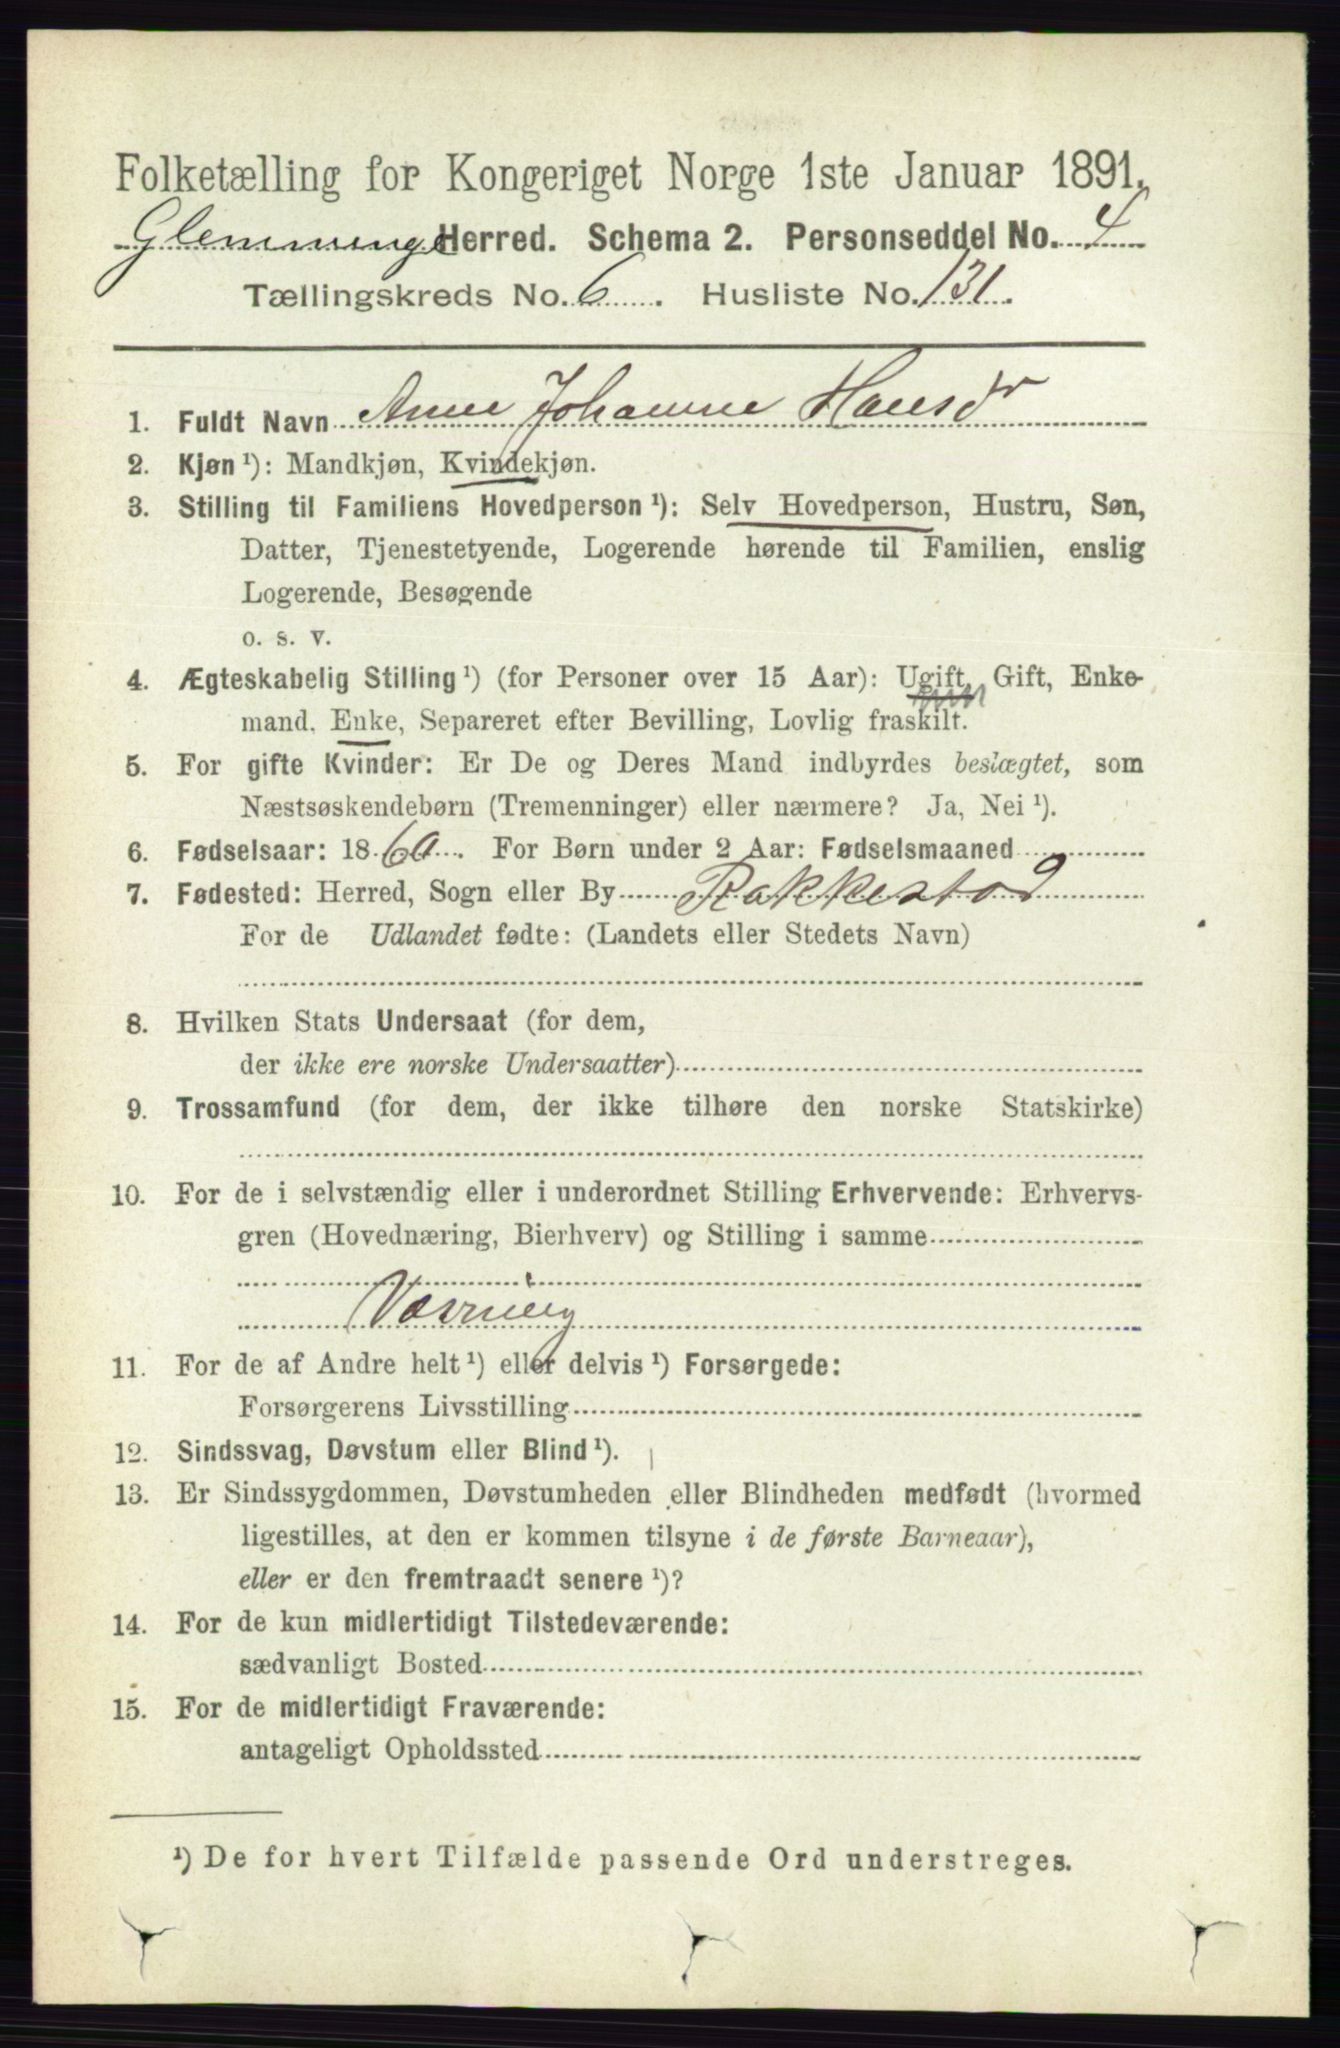 Folketælling for Kongeriget Norge 1ste Januar 1891.
Glemminge Herred. Schema 2. Personseddel No. 4
Tællingskreds No. 6. Husliste No. 131.
1. Fuldt Navn Anne Johanne Hansdr
2. Kjøn ¹): Mandkjøn, Kvindekjøn.
3. Stilling til Familiens Hovedperson ¹): Selv Hovedperson, Hustru, Søn,
Datter, Tjenestetyende, Logerende hørende til Familien, enslig
Logerende, Besøgende
o. s. v.
4. Ægteskabelig Stilling ¹) (for Personer over 15 Aar): Ugift, Gift, Enke-
mand, Enke, Separeret efter Bevilling, Lovlig fraskilt.
5. For gifte Kvinder: Er De og Deres Mand indbyrdes beslægtet, som
Næstsøskendebørn (Tremenninger) eller nærmere? Ja, Nei ¹).
6. Fødselsaar: 1860. For Børn under 2 Aar: Fødselsmaaned
7. Fødested: Herred, Sogn eller By Rakkestad
For de Udlandet fødte: (Landets eller Stedets Navn)
8. Hvilken Stats Undersaat (for dem,
der ikke ere norske Undersaatter)
9. Trossamfund (for dem, der ikke tilhøre den norske Statskirke)
10. For de i selvstændig eller i underordnet Stilling Erhvervende: Erhvervs-
gren (Hovednæring, Bierhverv) og Stilling i samme
Vævning
11. For de af Andre helt ¹) eller delvis ¹) Forsørgede:
Forsørgerens Livsstilling
12. Sindssvag, Døvstum eller Blind ¹).
13. Er Sindssygdommen, Døvstumheden eller Blindheden medfødt (hvormed
ligestilles, at den er kommen tilsyne i de første Barneaar),
eller er den fremtraadt senere ¹)?
14. For de kun midlertidigt Tilstedeværende:
sædvanligt Bosted
15. For de midlertidigt Fraværende:
antageligt Opholdssted
¹) De for hvert Tilfælde passende Ord understreges.